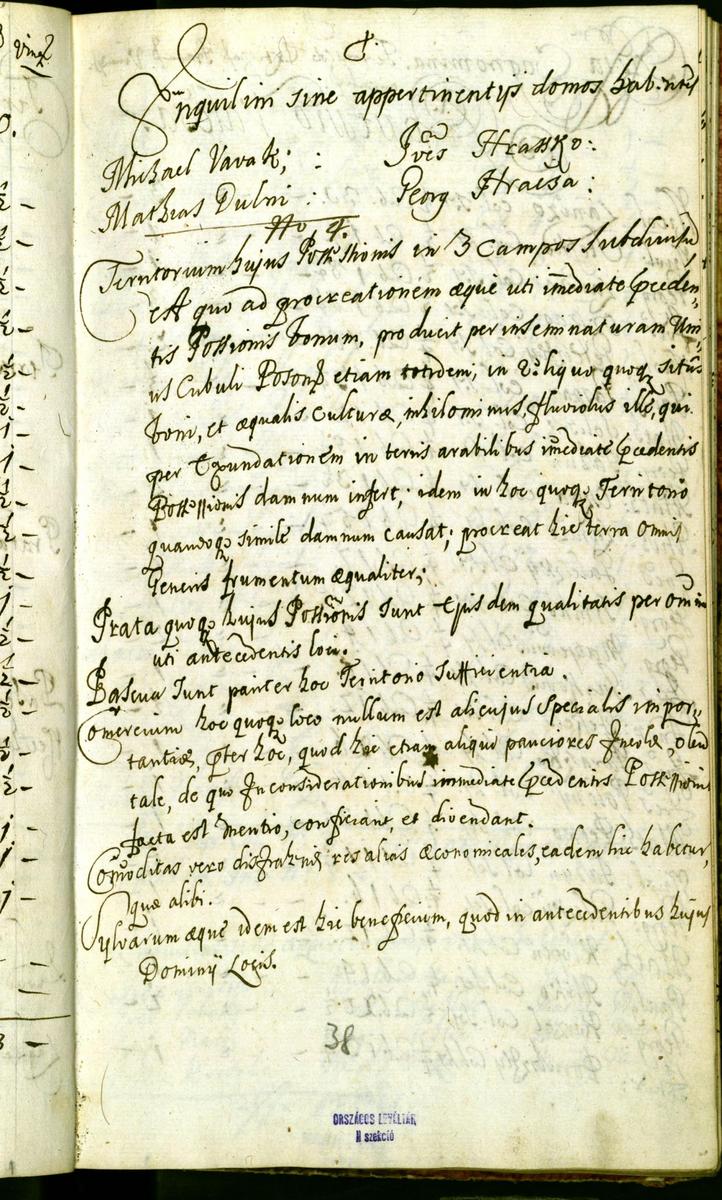 Inquilini sine appertinentijs domos habentes
Michael Vavak; : Joēs Hrassko:
Mathias Dulni : Georg Hracsa:
No 4.
Territorium hujus Possessionis in 3 Campos subdivisū
est quo ad procreationem æque uti im̄ediate præceden,
tis Possionis bonum, producit per inseminaturam Uni,
us Cubuli Poson etiam totidem; in reliquo quoq situs
boni, et æqualis Culturæ, nihilominus, fluviolus ille, qui
per Exundationem in terris arabilibus im̄ediate præcedentis
Possessionis damnum infert; idem in hoc quoq Territorio
quandoq simile damnum causat; procreat hic terra omnis
Generis frumentum æqualiter;
Prata quoq hujus Possionis sunt Ejusdem qualitatis per omnia
uti antecedentis loci.
Pascua sunt pariter hoc Territorio sufficientia.
Com̄ercium hoc quoq loco nullum est alicujus specialis impor,
tantiæ, præter hoc, quod hic etiam aliqui pauciores Incolæ,
tale, de quo In considerationibus immediate præcedentis Possessionis
facta est mentio, conficiant, et divendant.
Com̄oditas vero distrahendi res alias œconomicales, eadem hic habetur,
quæ alibi.
Sylvarum æque idem est hic beneficium, quod in antecedentibus hujus
Dominij Locis.
38
ORSZÁGOS LEVÉLTÁR
II szekció